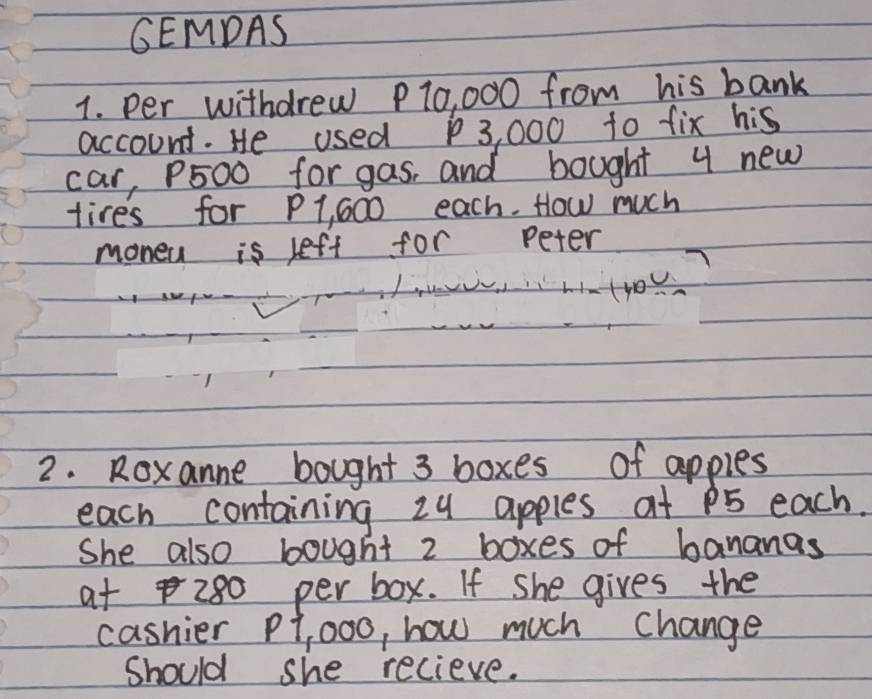 GEMDAS
1. Per withdrew P10,000 from his bank
account. He used P3,000 to fix his
car, P500 for gas, and bought 4 new
tires for P1,600 each. How much
money is left for Peter
2. Roxanne bought 3 boxes of apples
each containing 24 apples at P5 each.
She also bought 2 boxes of bananas
at ₱280 per box. If she gives the
cashier P1,000, how much change
should she recieve.